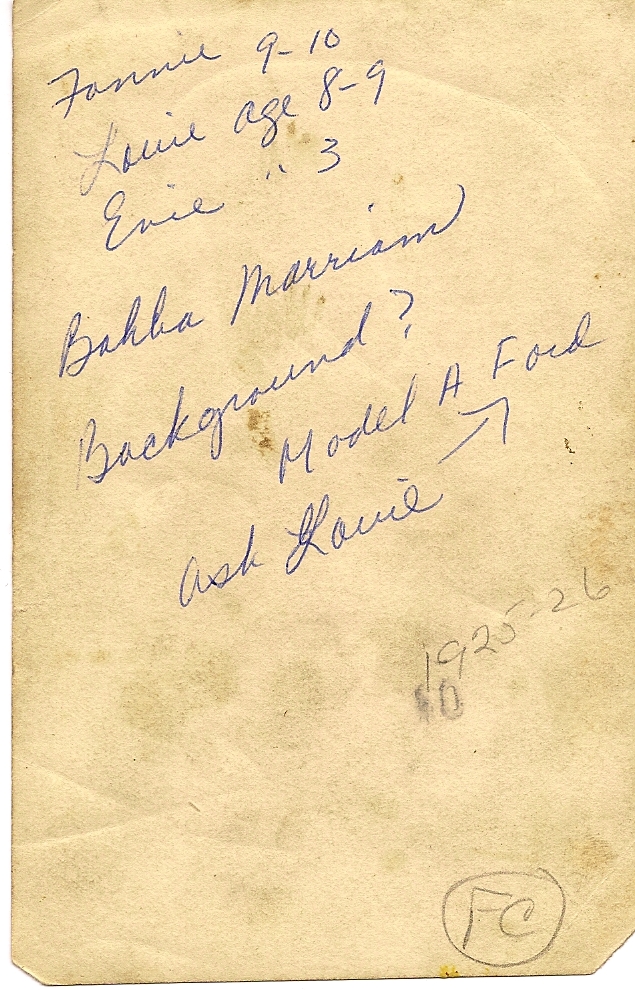 Fannie 9-10
Louie age 8-9
Evie " 3
Bahba Marriam
Background?
Model A Ford
ask Louie
1925-26
FC